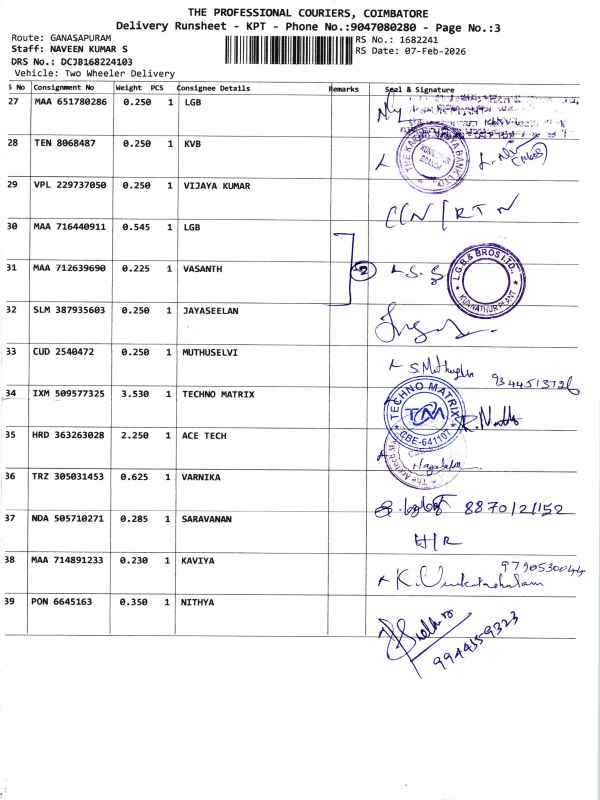 THE PROFESSIONAL COURIERS, COIMBATORE
Delivery Runsheet - KPT - Phone No.:9047080280 - Page No.:3
Route: GANASAPURAM
RS No.: 1682241
Staff: NAVEEN KUMAR S
RS Date: 07-Feb-2026
DRS No.: DCJB168224103
Vehicle: Two Wheeler Delivery
S No Consignment No Weight PCS Consignee Details Remarks Seal & Signature
27 MAA 651780286 0.250 1 LGB
28 TEN 8068487 0.250 1 KVB
29 VPL 229737050 0.250 1 VIJAYA KUMAR CCN / RTN
30 MAA 716440911 0.545 1 LGB
31 MAA 712639690 0.225 1 VASANTH 2 L.G.B. & BROS LTD., KUNNATHUR PLANT
32 SLM 387935603 0.250 1 JAYASEELAN
33 CUD 2540472 0.250 1 MUTHUSELVI
34 IXM 509577325 3.530 1 TECHNO MATRIX TECHNO MATRIX TM CBE-641107
35 HRD 363263028 2.250 1 ACE TECH
36 TRZ 305031453 0.625 1 VARNIKA
37 NDA 505710271 0.285 1 SARAVANAN H/R
38 MAA 714891233 0.230 1 KAVIYA 9790530044 K. Venkatachalam
39 PON 6645163 0.350 1 NITHYA 9944559323